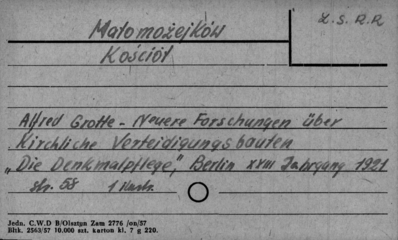 Z.S.R.R
Małomożejków
Kościół
Alfred Grotte - Neuere Forschungen über
Kirchliche Verteidigungsbauten
„Die Denkmalpflege", Berlin XVIII Jahrgang 1921
str. 58 1 ilustr.
Jedn. C.W.D B/Olsztyn Zam 2776 /on/57
Bltk. 2563/57 10.000 szt. karton kl. 7 g 220.